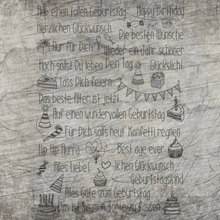 Hab einen tollen Geburtstag Happy Birthday
Herzlichen Glückwunsch
Die besten Wünsche
Nur für Dich!
Wieder ein Jahr schöner
Hoch sollst Du leben Dein Tag
Glückslicht
Lass Dich feiern
Das beste Alter ist jetzt
Auf einen wundervollen Geburtstag
Für Dich solls heut Konfetti regnen
Hip Hip Hurra Best age ever
Alles Liebe! lichen Glückwunsch
Geburtstagskind
Alles Gute zum Geburtstag